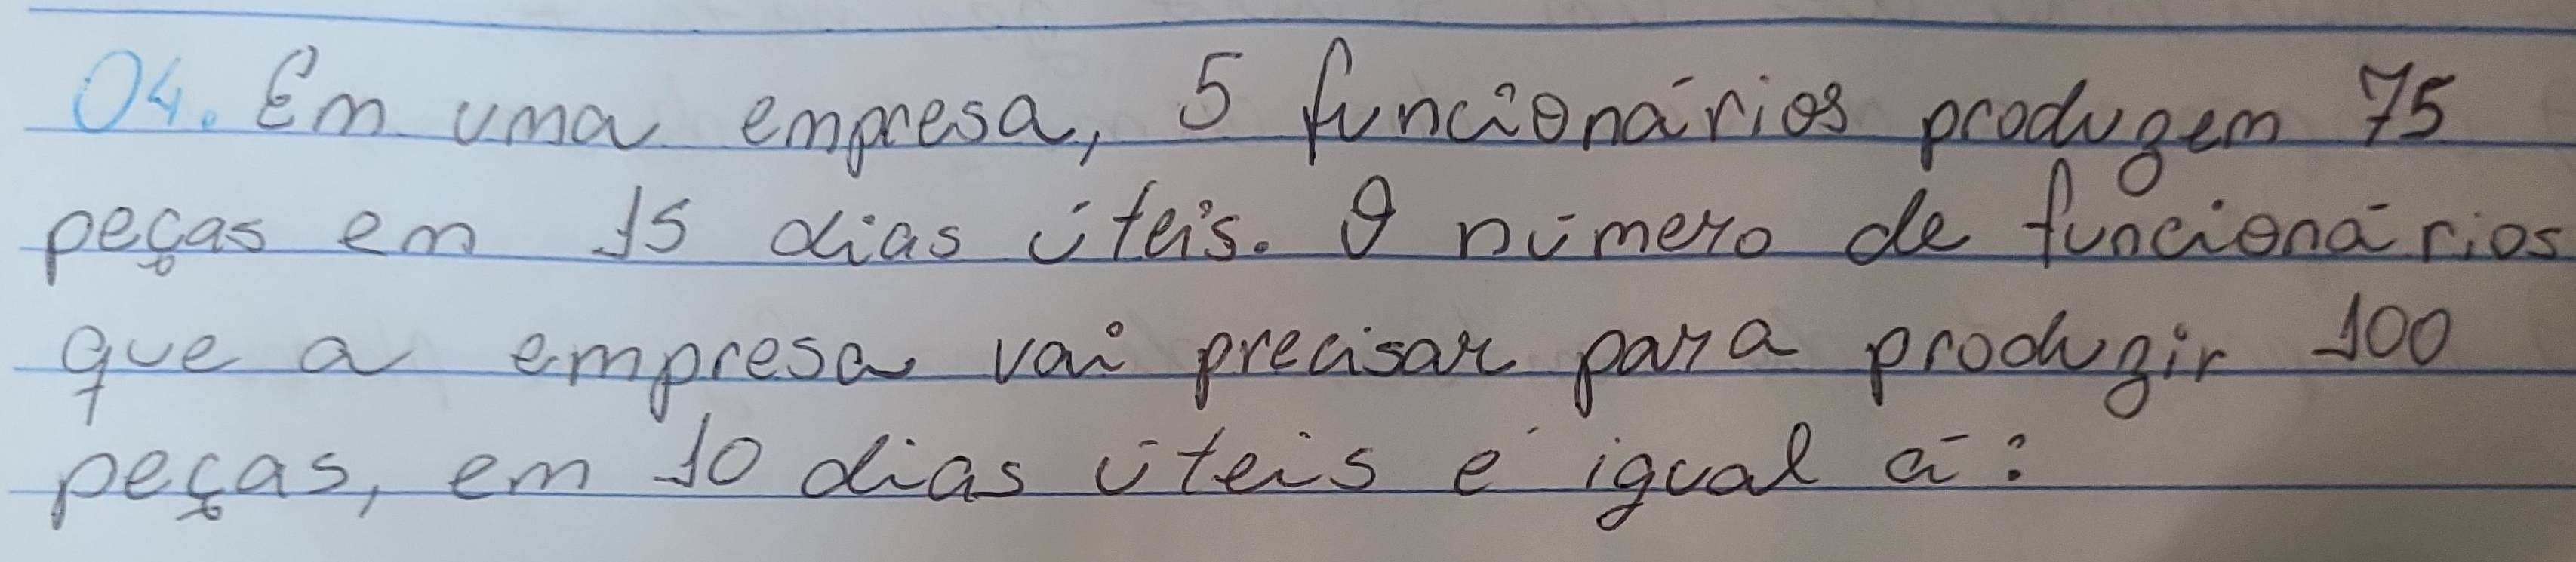 04. Em uma empresa, 5 funcionários produzem 75
peças em 15 dias úteis. O número de funcionários
que a empresa vai precisar para produzir 100
peças, em 10 dias úteis é igual á: